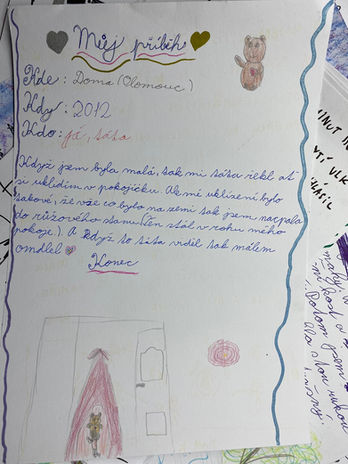 Můj příběh
Kde: Doma (Olomouc)
Kdy: 2012
Kdo: já, táta
Když jsem byla malá, tak mi táta řekl ať
si uklidím v pokojíčku. Ale mé uklízení bylo
takové, že vše co bylo na zemi tak jsem nacpala
do růžového stanu (ten stál v rohu mého
pokoje). A když to táta viděl tak málem
omdlel
Konec